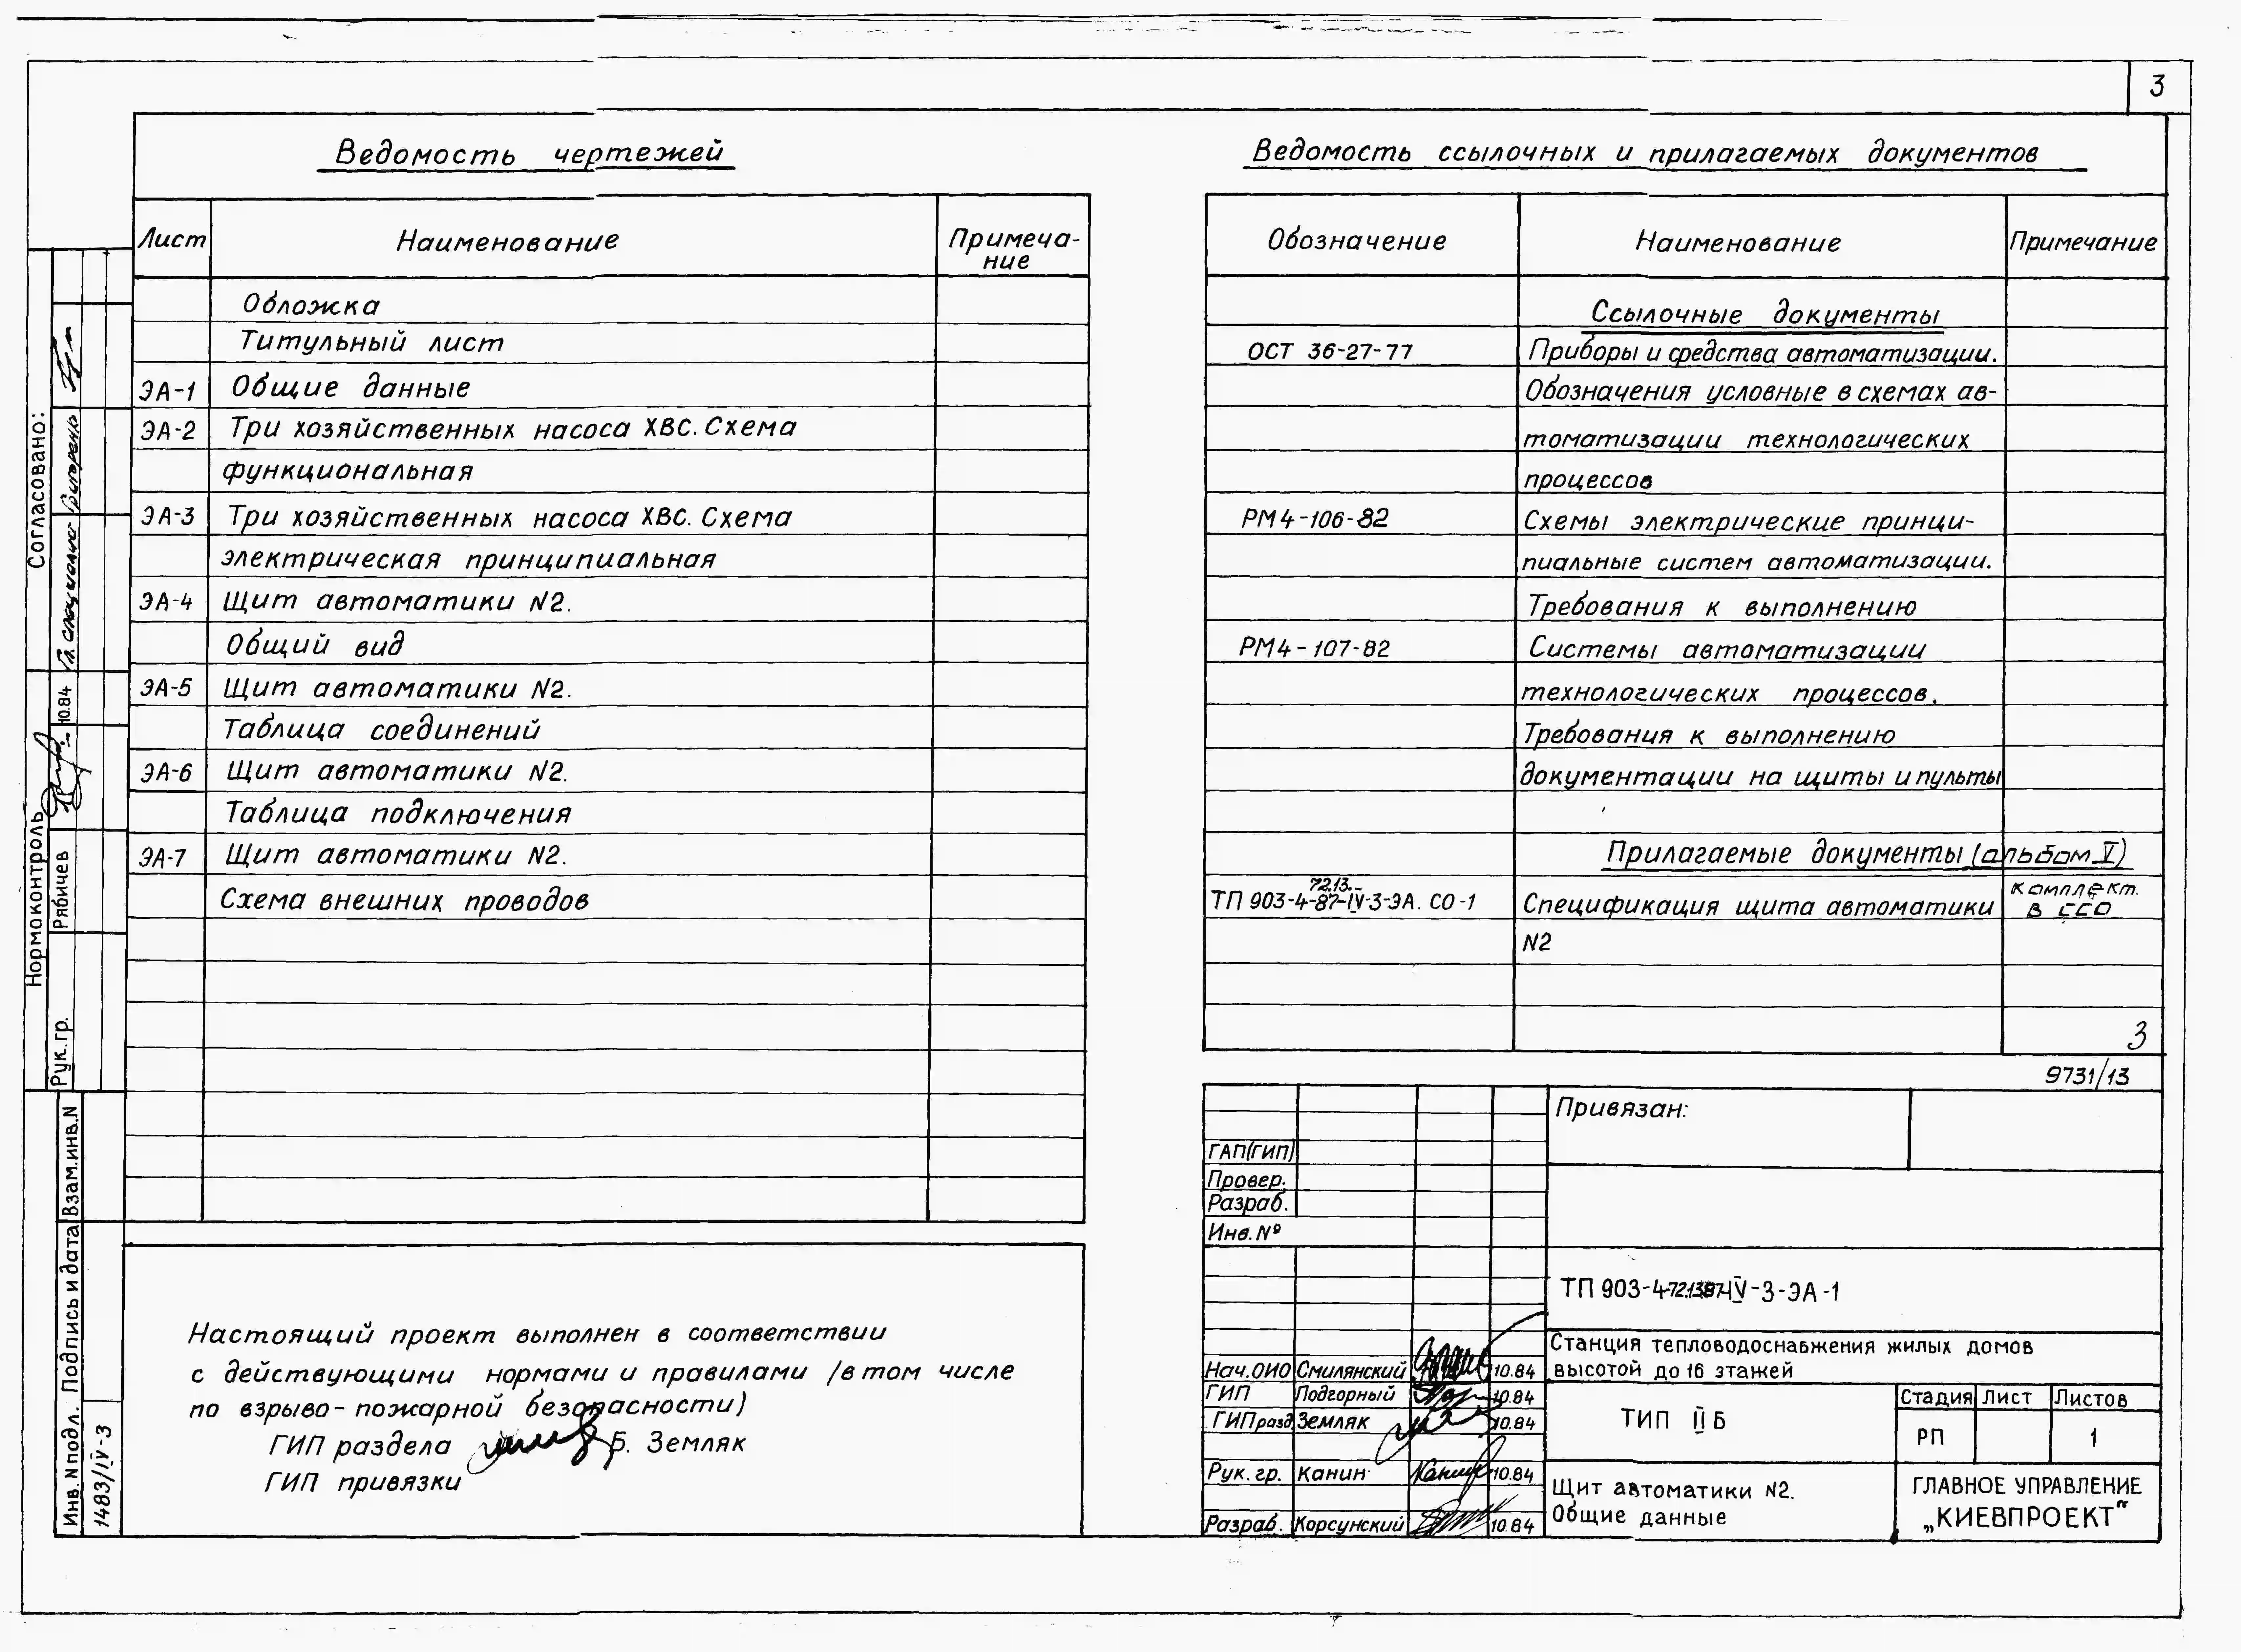 3
Ведомость чертежей
Лист Наименование Примеча-
ние
Обложка
Титульный лист
ЭА-1 Общие данные
ЭА-2 Три хозяйственных насоса ХВС. Схема
функциональная
ЭА-3 Три хозяйственных насоса ХВС. Схема
электрическая принципиальная
ЭА-4 Щит автоматики N2.
Общий вид
ЭА-5 Щит автоматики N2.
Таблица соединений
ЭА-6 Щит автоматики N2.
Таблица подключения
ЭА-7 Щит автоматики N2.
Схема внешних проводов
Настоящий проект выполнен в соответствии
с действующими нормами и правилами /в том числе
по взрыво- пожарной безопасности)
ГИП раздела Б. Земляк
ГИП привязки
Ведомость ссылочных и прилагаемых документов
Обозначение Наименование Примечание
Ссылочные документы
ОСТ 36-27-77 Приборы и средства автоматизации.
Обозначения условные в схемах ав-
томатизации технологических
процессов
РМ4-106-82 Схемы электрические принци-
пиальные систем автоматизации.
Требования к выполнению
РМ4-107-82 Системы автоматизации
технологических процессов.
Требования к выполнению
документации на щиты и пульты
Прилагаемые документы (альбом V)
72.13.-
ТП 903-4-87-IV-3-ЭА. СО-1 Спецификация щита автоматики комплект.
в ССО
N2
3
9731/13
Привязан:
ГАП(ГИП)
Провер.
Разраб.
Инв.№
ТП 903-4- IV-3-ЭА-1
Станция тепловодоснабжения жилых домов
высотой до 16 этажей
Нач.ОИО Смилянский 10.84
ГИП Подгорный 10.84
ГИПразд Земляк 10.84
Рук. гр. Канин 10.84
Разраб. Корсунский 10.84
ТИП II Б
Стадия Лист Листов
РП 1
Щит автоматики N2.
Общие данные
ГЛАВНОЕ УПРАВЛЕНИЕ
„КИЕВПРОЕКТ"
Согласовано:
Гл. специалист
10.84
Нормоконтроль
Рябичев
Рук.гр.
Взам.инв.N
Подпись и дата
Инв.Nподл.
1483/IV-3